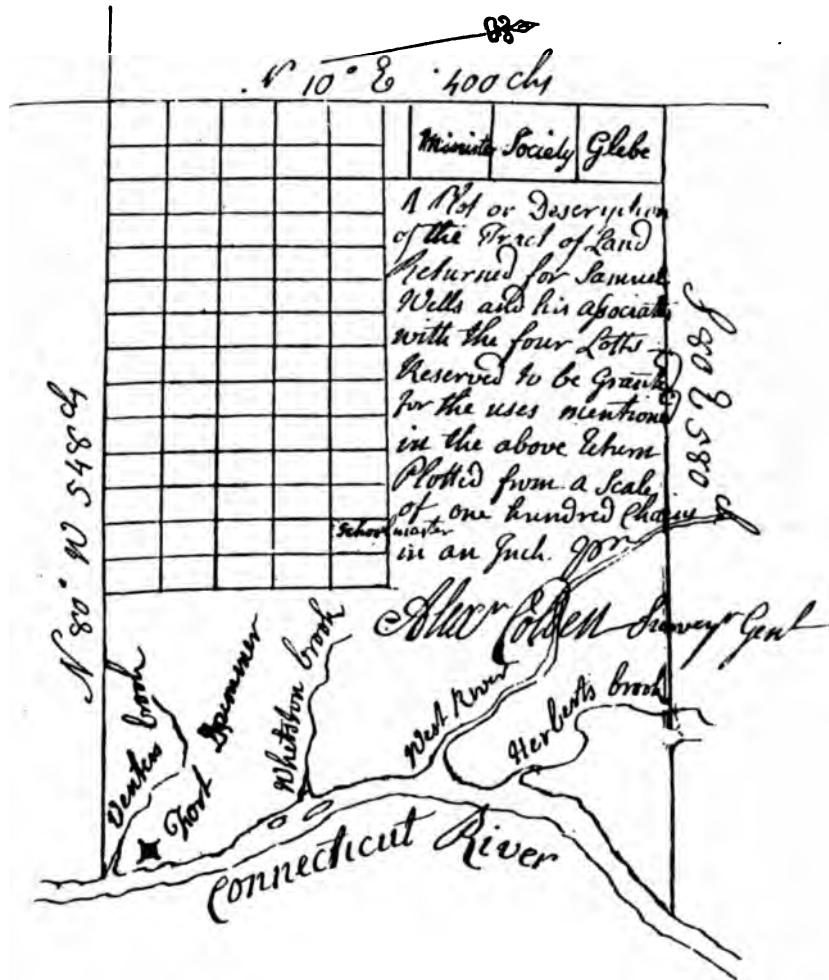 N 10° E 400 chs
Minister Society Glebe
A Plot or Description
of the Tract of Land
Returned for Samuel
Wells and his associates
with the four Lotts
Reserved to be Granted
for the uses mentioned
in the above Return
Plotted from a Scale
of one hundred Chains
in an Inch. Ppr
School master
Alexr Colden Surveyr Genl
N 80° W 548 ch
S 80 E 580 ch
Venters brook
Fort Dummer
Whetston brook
West River
Herberts brook
Connecticut River